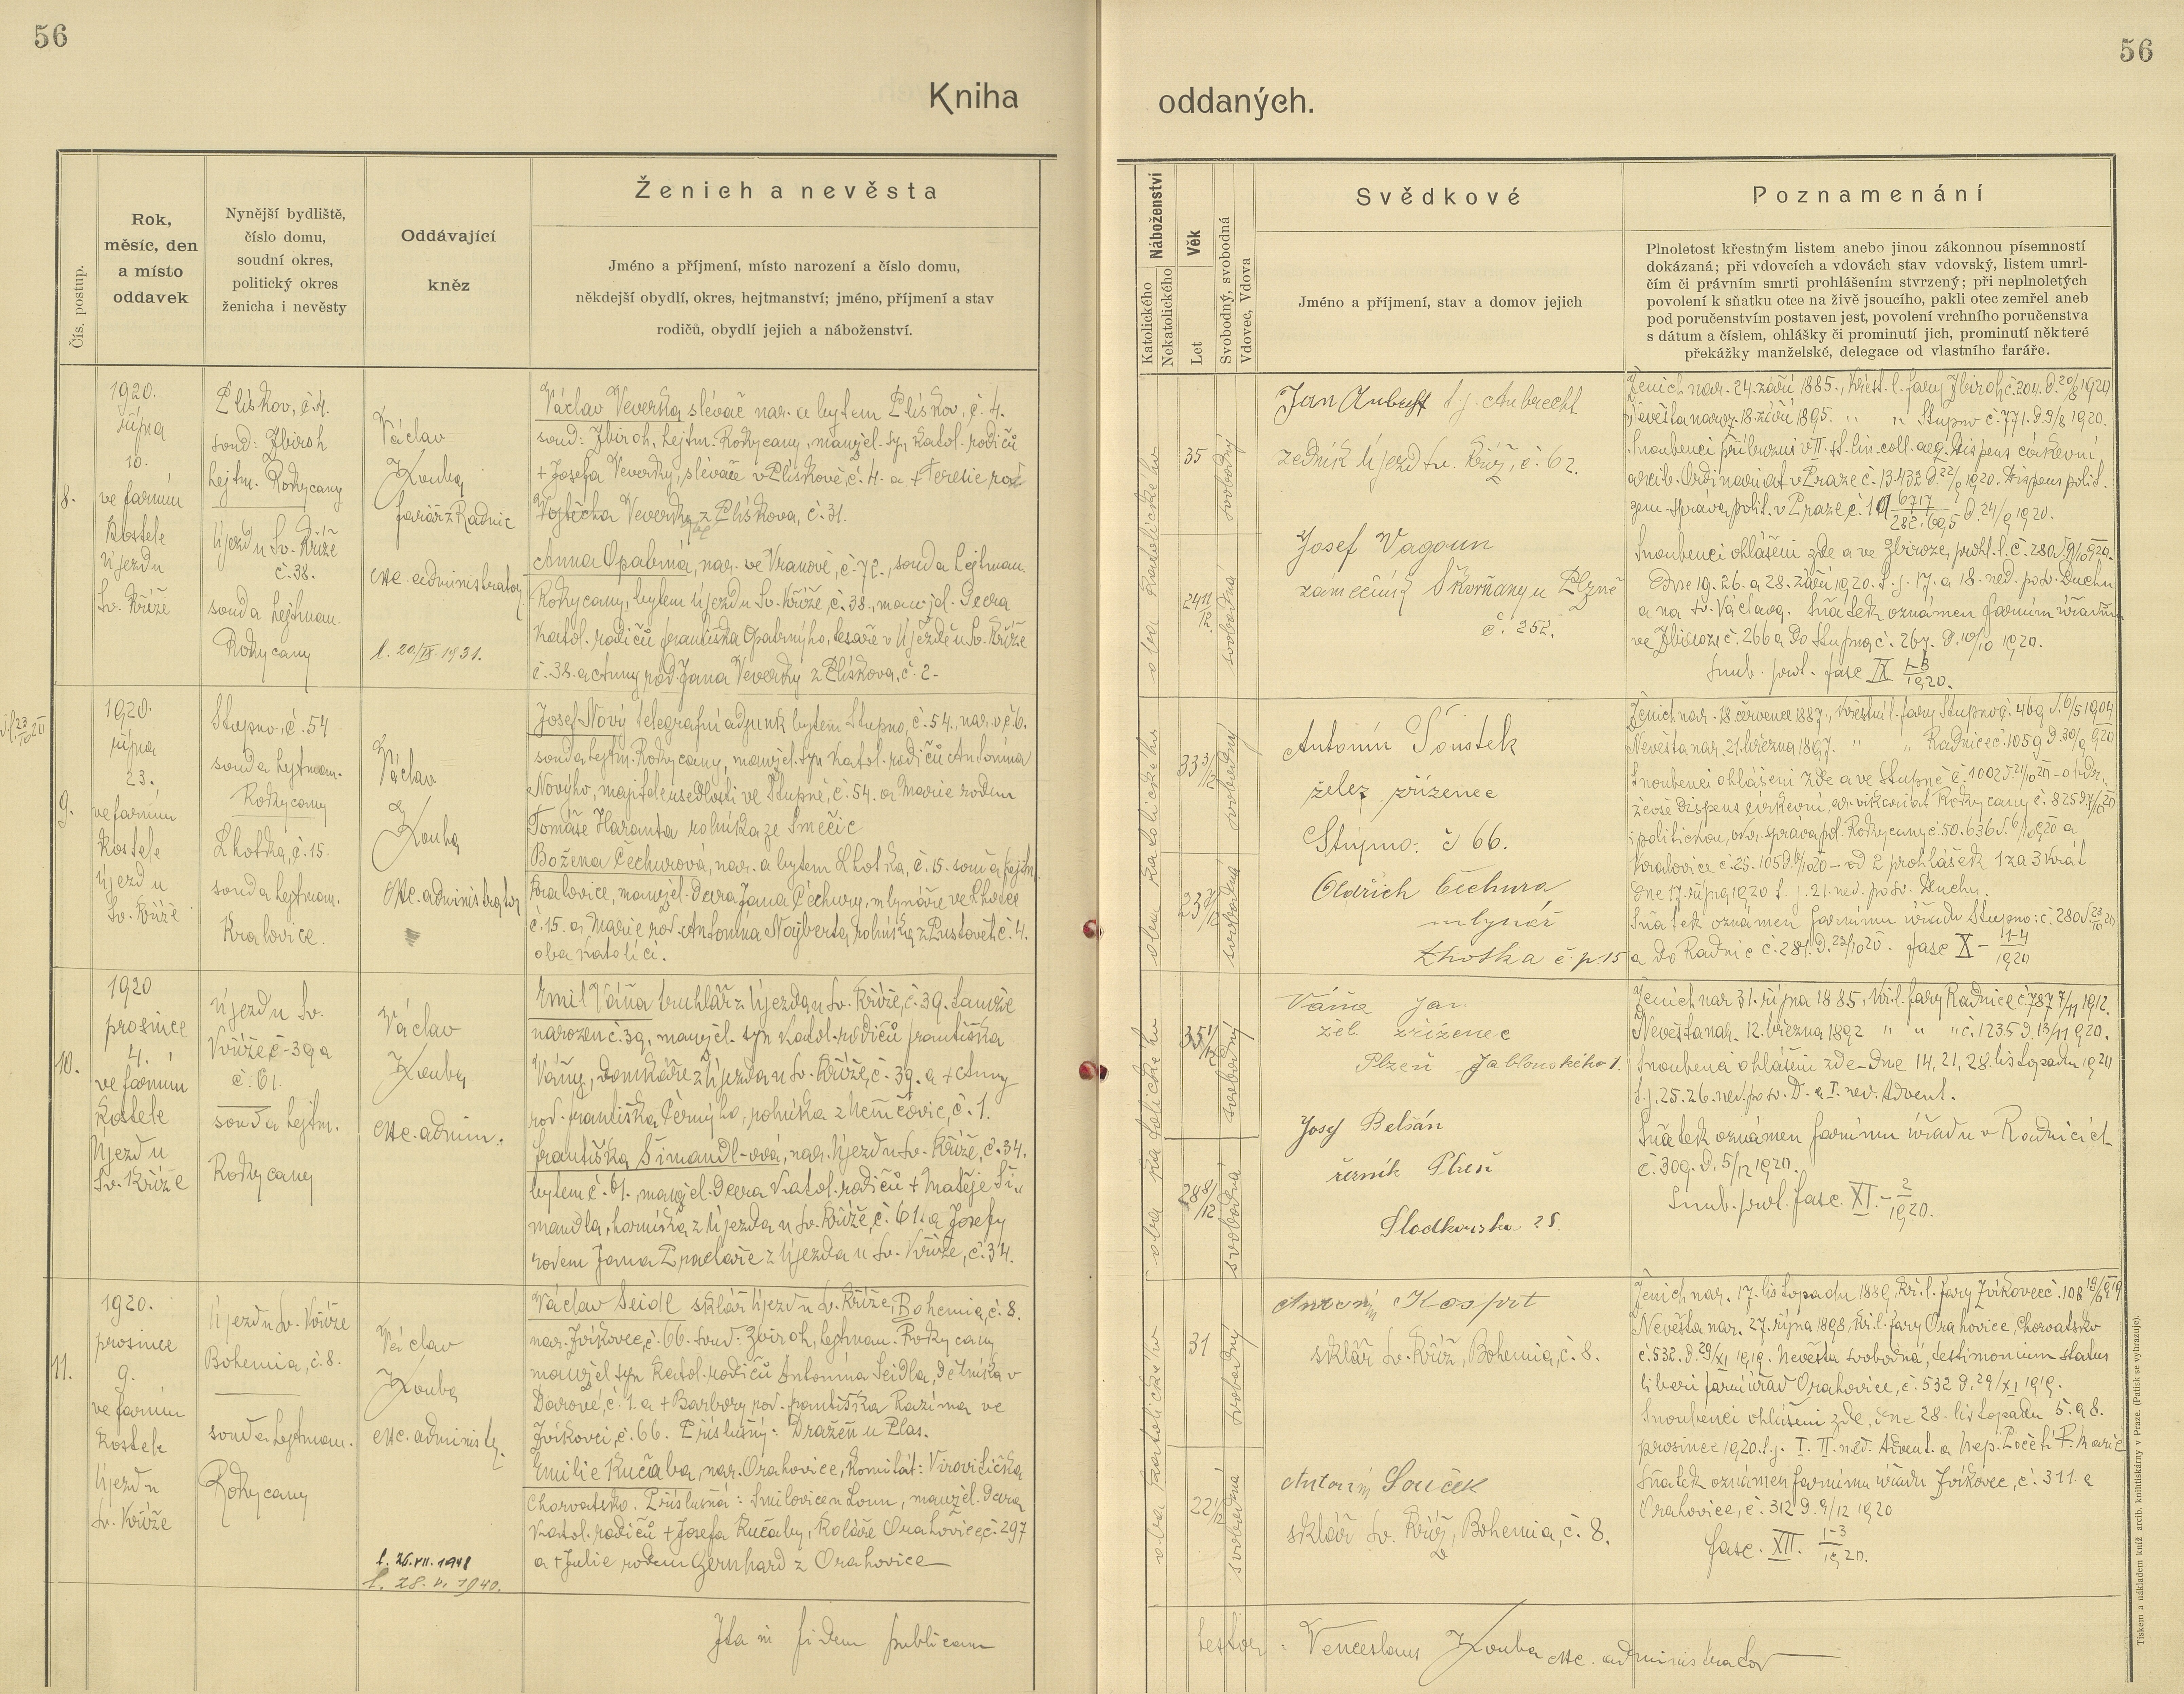 56
56
Kniha
oddaných.
Čís. postup.
Rok,
měsíc, den
a místo
oddavek
Nynější bydliště,
číslo domu,
soudní okres,
politický okres
ženicha i nevěsty
Oddávající
kněz
Ženich a nevěsta
Jméno a příjmení, místo narození a číslo domu,
někdejší obydlí, okres, hejtmanství; jméno, příjmení a stav
rodičů, obydlí jejich a náboženství.
Náboženství
Katolického
Nekatolického
Věk
Let
Svobodný, svobodná
Vdovec, Vdova
Svědkové
Jméno a příjmení, stav a domov jejich
Poznamenání
Plnoletost křestným listem anebo jinou zákonnou písemností
dokázaná; při vdovcích a vdovách stav vdovský, listem umrl-
čím či právním smrti prohlášením stvrzený; při neplnoletých
povolení k sňatku otce na živě jsoucího, pakli otec zemřel aneb
pod poručenstvím postaven jest, povolení vrchního poručenstva
s dátum a číslem, ohlášky či prominutí jich, prominutí některé
překážky manželské, delegace od vlastního faráře.
8.
1920.
října
10.
ve farním
kostele
Újezd u
Sv. Kříže
Plískov, č. 4.
soud: Zbiroh
hejtm. Rokycany
Újezd u Sv. Kříže
č. 38.
soud a hejtman.
Rokycany
Václav
Kouba
farář z Radnic
exc. administrator
l. 20/IX. 1931.
Václav Veverka slévač nar. a bytem Plískov, č. 4.
soud: Zbiroh, hejtm. Rokycany, manžel. syn katol. rodičů
+ Josefa Veverky, slévače v Plískově, č. 4. a + Terezie roz
Vojtěcha Veverky z Plískova, č. 31.
Anna Opatrná, nar. ve Vranově, č. 72., soud a hejtman.
Rokycany, bytem Újezd u Sv. Kříže, č. 38., manžel. dcera
katol. rodičů Františka Opatrnýho, tesaře v Újezdě u Sv. Kříže
č. 38. a Anny rod. Jana Veverky z Plískova, č. 2.
oba katolického
35
svobodný
24 11/12
svobodná
Jan Aubrecht t. j. Aubrecht
zedník Újezd Sv. Kříž, č. 62.
Josef Vagoun
zámečník Skvrňany u Plzně
č. 252.
Ženich nar. 24. září 1885., křest. l. fary Zbiroh, č. 204. d. 20/8 1920
Nevěsta naroz. 18. září 1895. " " Stupno č. 771. d. 9/8 1920.
Snoubenci příbuzní v II. st. lin. coll. aeq. Dispens církevní,
arcib. Ordinariat v Praze č. 13.432 d. 22/9 1920. Dispens polit.
zem. správa polit. v Praze, č. 19 6717/282.605 d. 24/9 1920.
Snoubenci ohlášeni zde a ve Zbiroze, prohl. l. č. 280 d. 9/10 1920.
Dne 19. 26. a 28. září 1920. t. j. 17. a 18. ned. po sv. Duchu
a na sv. Václava. Sňatek oznámen farním úřadům
ve Zbiroze č. 266 a do Stupna, č. 267. d. 10/10 1920.
Snub. prot. fasc IX 1-3/1920.
9.
1920.
října
23.
ve farním
kostele
Újezd u
Sv. Kříže
Stupno, č. 54
soud a hejtman.
Rokycany
Lhotka, č. 15.
soud a hejtman.
Kralovice.
Václav
Kouba
exc. administrator
Josef Nový telegrafní adjunk bytem Stupno, č. 54., nar. v č. 6.
soud a hejtm. Rokycany, manžel. syn katol. rodičů Antonína
Novýho, majitele usedlosti ve Stupně, č. 54. a Marie rodem
Tomáše Haranta rolníka ze Smečic
Božena Čechurová, nar. a bytem Lhotka, č. 15. soud a hejtm.
Kralovice, manžel. dcera Jana Čechury, mlynáře ve Lhotce
č. 15. a Marie rod. Antonína Najberta, rolníka z Pustovět, č. 4.
oba katolíci.
oba katolického
33 3/12
svobodný
23 7/12
svobodná
Antonín Šoustek
želez. zřízenec
Stupno: č 66.
Oldřich Čechura
mlynář
Lhotka č. p. 15
Ženich nar. 18. července 1887., křestní l. fary Stupno č. 469 d. 6/5 1904
Nevěsta nar. 21. března 1897. " " Radnice č. 1059 d. 30/9 1920
Snoubenci ohlášeni zde a ve Stupně č. 1002 d. 21/10 20 – obdr-
želi dispens církevní, ar. vikariat Rokycany č. 825 d. 7/10 20
i politickou, okr. správa pol. Rokycany č. 50.636 d. 6/10 1920 a
Kralovice č. 25.105 d. 6/10 20 – od 2 prohlášek 1 za 3 krát
dne 17. října 1920 t. j. 21. ned. po sv. Duchu.
Sňatek oznámen farnímu úřadu Stupno: č. 280 d. 23/10 20
a do Radnic č. 281. d. 23/10 20. fasc X – 1-4/1920
10.
1920
prosince
4.
ve farním
kostele
Újezd u
Sv. Kříže
Újezd u Sv.
Kříže č. 39 a
č. 61.
soud a hejtm.
Rokycany
Václav
Kouba
exc. admin.
Emil Váňa truhlář z Újezda u Sv. Kříže, č. 39. tamže
narozen č. 39, manžel. syn katol. rodičů Františka
Váňy, domkáře z Újezda u Sv. Kříže, č. 39. a + Anny
rod. Františka Černýho, rolníka z Němčovic, č. 1.
Františka Šimandl-ová, nar. Újezd u Sv. Kříže, č. 34.
bytem č. 61. manžel. dcera katol. rodičů + Matěje Ši-
mandla, horníka z Újezda u Sv. Kříže, č. 61. a Josefy
rodem Jana Zpaclaře z Újezda u Sv. Kříže, č. 34.
oba katolického
35 1/12
svobodný
28 8/12
svobodná
Váňa Jan
žel. zřízenec
Plzeň Jablonského 1.
Josef Belšán
řezník Plzeň
Sladkovského 25.
Ženich nar. 31. října 1885, kř. l. fary Radnice č. 787 7/11 1912.
Nevěsta nar. 12. března 1892 " " " č. 1235 d. 13/11 1920.
Snoubenci ohlášeni zde – dne 14, 21, 28. listopadu 1920
t. j. 25. 26. ned. po sv. D. a I. ned. Advent.
Sňatek oznámen farnímu úřadu v Radnicích
č. 309. d. 5/12 1920.
Snub. prot. fasc. XI – 2/1920.
11.
1920.
prosince
9.
ve farním
kostele
Újezd u
Sv. Kříže
Újezd u Sv. Kříže
Bohemia, č. 8.
soud a hejtman.
Rokycany
Václav
Kouba
exc. administr.
l. 26. VII. 1948
l. 28. V. 1940.
Václav Seidl sklář Újezd u Sv. Kříže, Bohemia, č. 8.
nar. Zvíkovec, č. 66. soud: Zbiroh, hejtman. Rokycany
manžel. syn katol. rodičů Antonína Seidla, dělníka v
Darové, č. 1. a + Barbory rod. Františka Kazima ve
Zvíkovci, č. 66. Příslušný: Dražeň u Plas.
Emilie Kučaba, nar. Orahovice, komitát: Virovitička
Chorvatsko. Příslušná: Smilovice u Loun, manžel. dcera
katol. rodičů + Josefa Kučaby, koláře Orahovice, č. 297
a + Julie rodem Gernhard z Orahovice
oba katolického
31
svobodný
22 1/12
svobodná
Antonín Kasprt
sklář Sv. Kříž, Bohemia, č. 8.
Antonín Souček
sklář Sv. Kříž, Bohemia, č. 8.
Ženich nar. 17. listopadu 1889, kř. l. fary Zvíkovec č. 108
Nevěsta nar. 27. října 1898, kř. l. fary Orahovice, Chorvatsko
č. 532. d. 29/XI 1919. Nevěsta svobodná, testimonium status
liberi farní úřad Orahovice, č. 532 d. 29/XI 1919.
Snoubenci ohlášeni zde, dne 28. listopadu 5. a 8.
prosince 1920. t. j. I. II. ned. Advent. a Nep. Početí P. Marie
Sňatek oznámen farnímu úřadu Zvíkovec, č. 311. a
Orahovice, č. 312 d. 9/12 1920
fasc. XII. 1-3/1920.
Ita in fidem publicam
testor: Venceslaus Kouba exc. administrator
Tiskem a nákladem kníž. arcib. knihtiskárny v Praze. (Patisk se vyhrazuje).